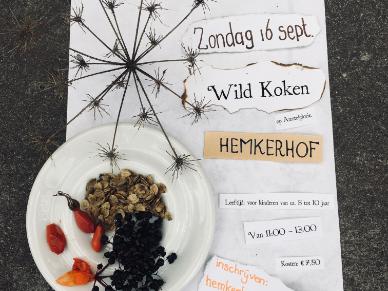 Zondag 16 sept.
Wild Koken
op Amstelglorie
HEMKERHOF
Leeftijd: voor kinderen van ca. 8 tot 10 jaar
Van 11:00 - 13:00
Kosten: € 7,50
inschrijven: